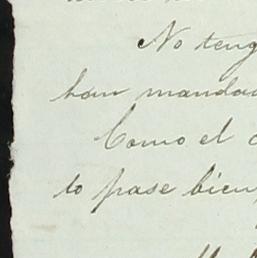 No teng
han mandad
Como el
to pase bien